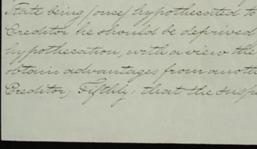 State being [once] hypothecated to
Creditor he should be deprived
hypothecation, with a view the
obtain advantages from anoth
Creditor, Fifthly: that the susp